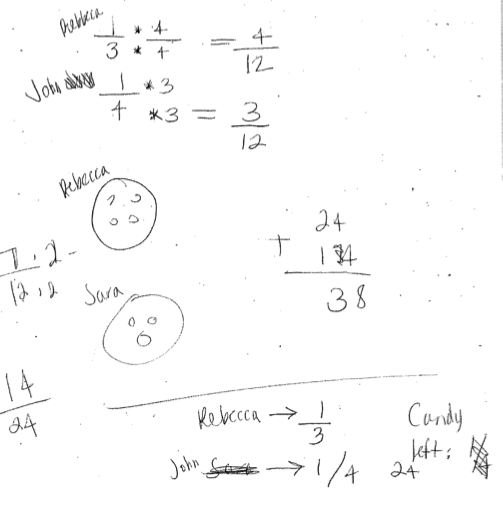 Rebbeca 1/3 * 4/4 = 4/12
John 1/4 *3 *3 = 3/12
Rebecca
7.2
12.2
Sara
24
+ 14
38
14/24
Rebecca → 1/3
John → 1/4
Candy left: 24